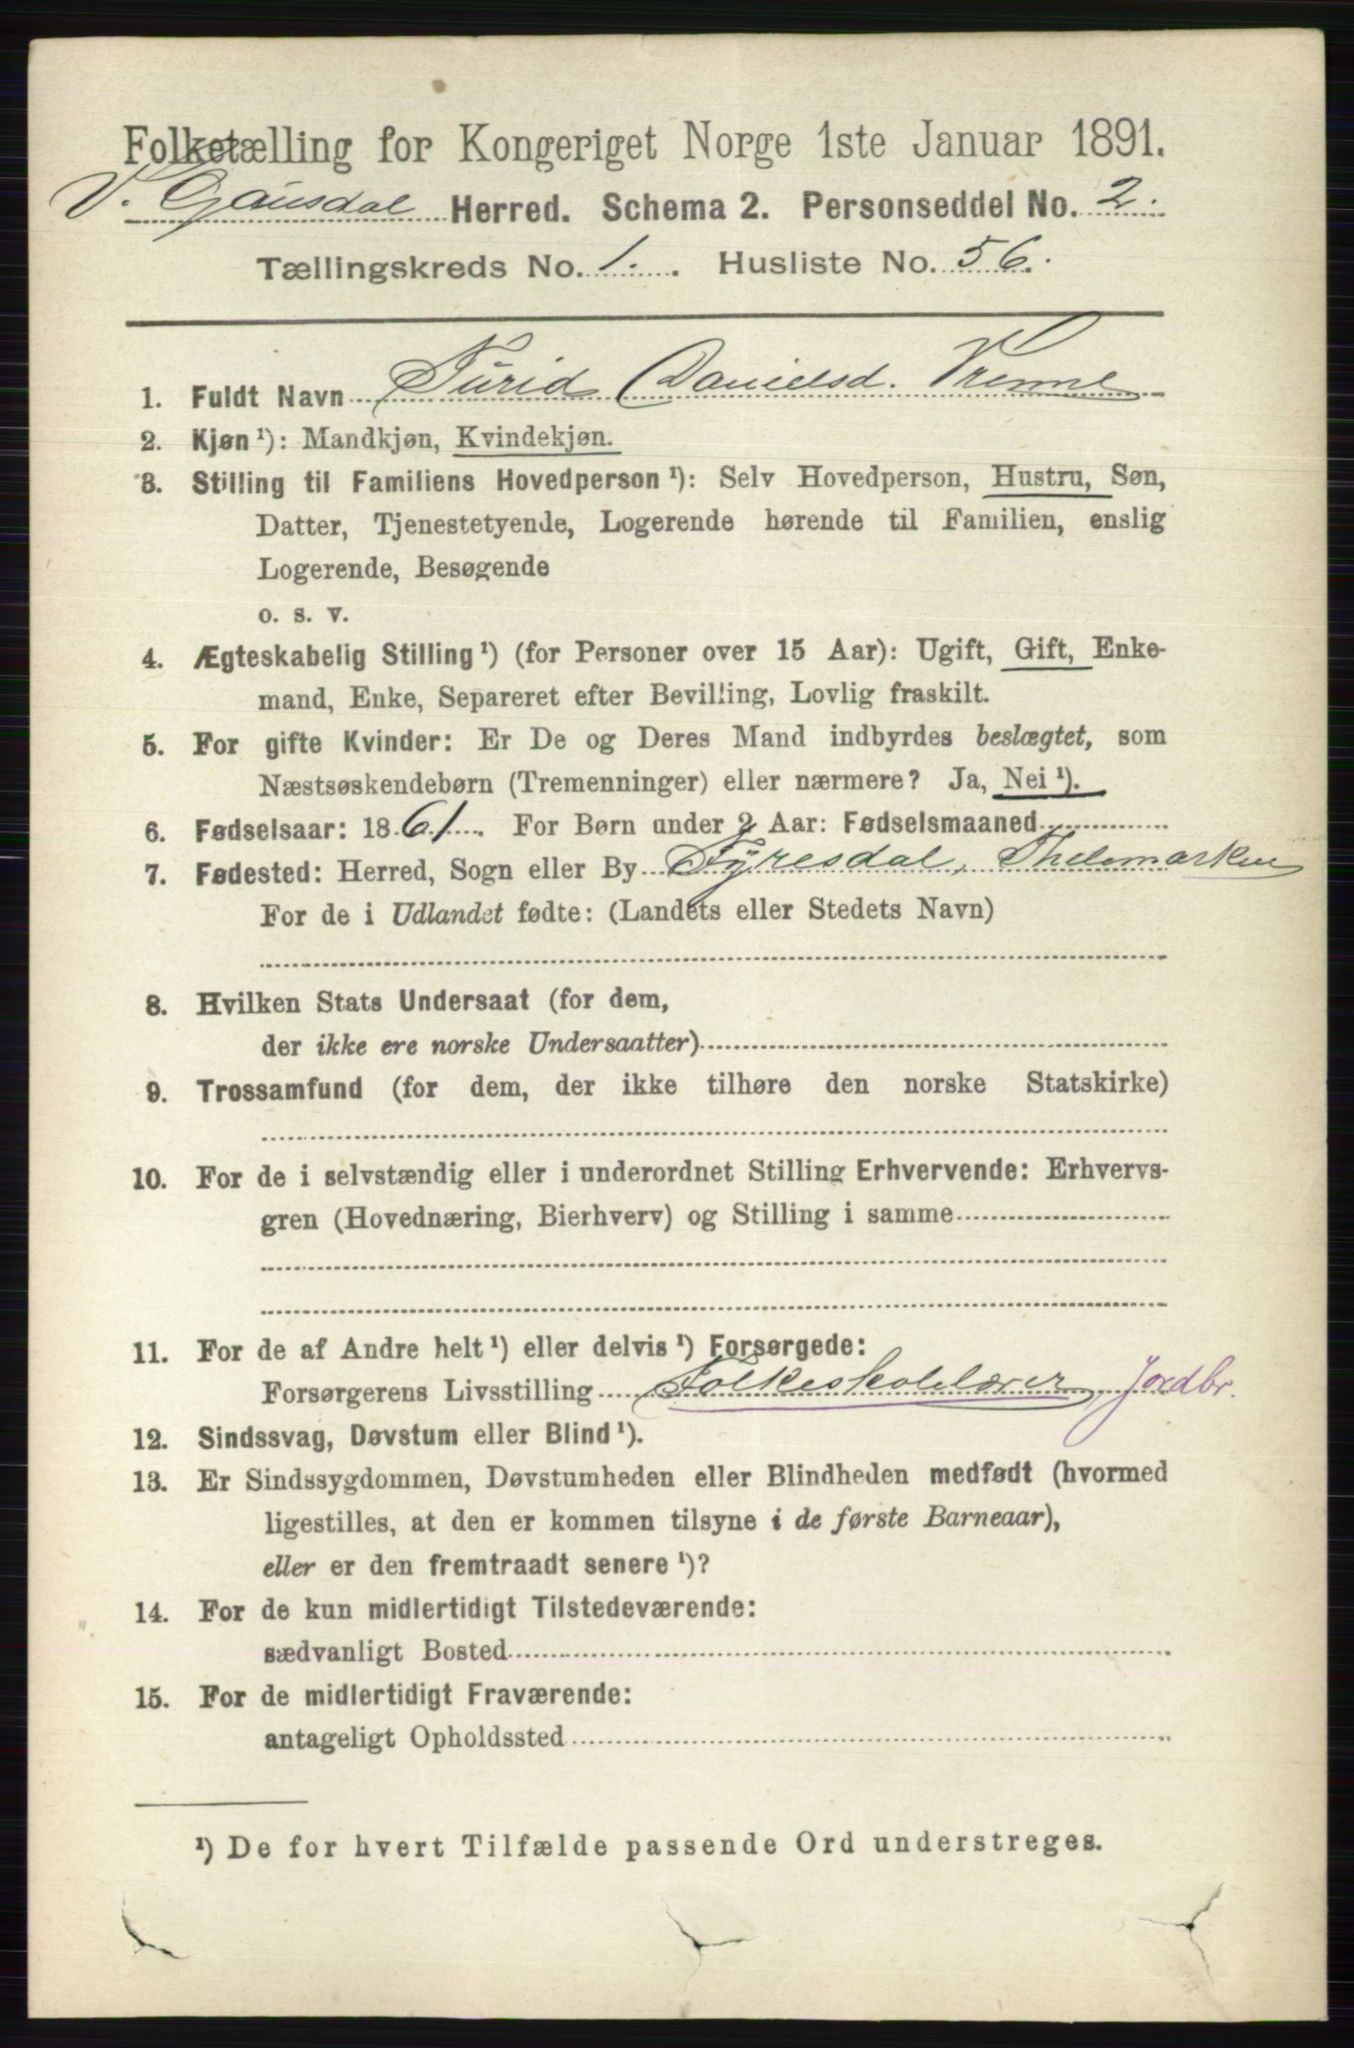 Folketælling for Kongeriget Norge 1ste Januar 1891.
V. Gausdal Herred. Schema 2. Personseddel No. 2.
Tællingskreds No. 1. Husliste No. 56.
1. Fuldt Navn Turid Danielsd. Vrenne
2. Kjøn ¹): Mandkjøn, Kvindekjøn.
3. Stilling til Familiens Hovedperson ¹): Selv Hovedperson, Hustru, Søn,
Datter, Tjenestetyende, Logerende hørende til Familien, enslig
Logerende, Besøgende
o. s. v.
4. Ægteskabelig Stilling ¹) (for Personer over 15 Aar): Ugift, Gift, Enke-
mand, Enke, Separeret efter Bevilling, Lovlig fraskilt.
5. For gifte Kvinder: Er De og Deres Mand indbyrdes beslægtet, som
Næstsøskendebørn (Tremenninger) eller nærmere? Ja, Nei ¹).
6. Fødselsaar: 1861. For Børn under 2 Aar: Fødselsmaaned
7. Fødested: Herred, Sogn eller By Fyresdal, Thelemarken
For de i Udlandet fødte: (Landets eller Stedets Navn)
8. Hvilken Stats Undersaat (for dem,
der ikke ere norske Undersaatter)
9. Trossamfund (for dem, der ikke tilhøre den norske Statskirke)
10. For de i selvstændig eller i underordnet Stilling Erhvervende: Erhvervs-
gren (Hovednæring, Bierhverv) og Stilling i samme
11. For de af Andre helt ¹) eller delvis ¹) Forsørgede:
Forsørgerens Livsstilling Folkeskolelærer, Jordbr.
12. Sindssvag, Døvstum eller Blind ¹).
13. Er Sindssygdommen, Døvstumheden eller Blindheden medfødt (hvormed
ligestilles, at den er kommen tilsyne i de første Barneaar),
eller er den fremtraadt senere ¹)?
14. For de kun midlertidigt Tilstedeværende:
sædvanligt Bosted
15. For de midlertidigt Fraværende:
antageligt Opholdssted
¹) De for hvert Tilfælde passende Ord understreges.